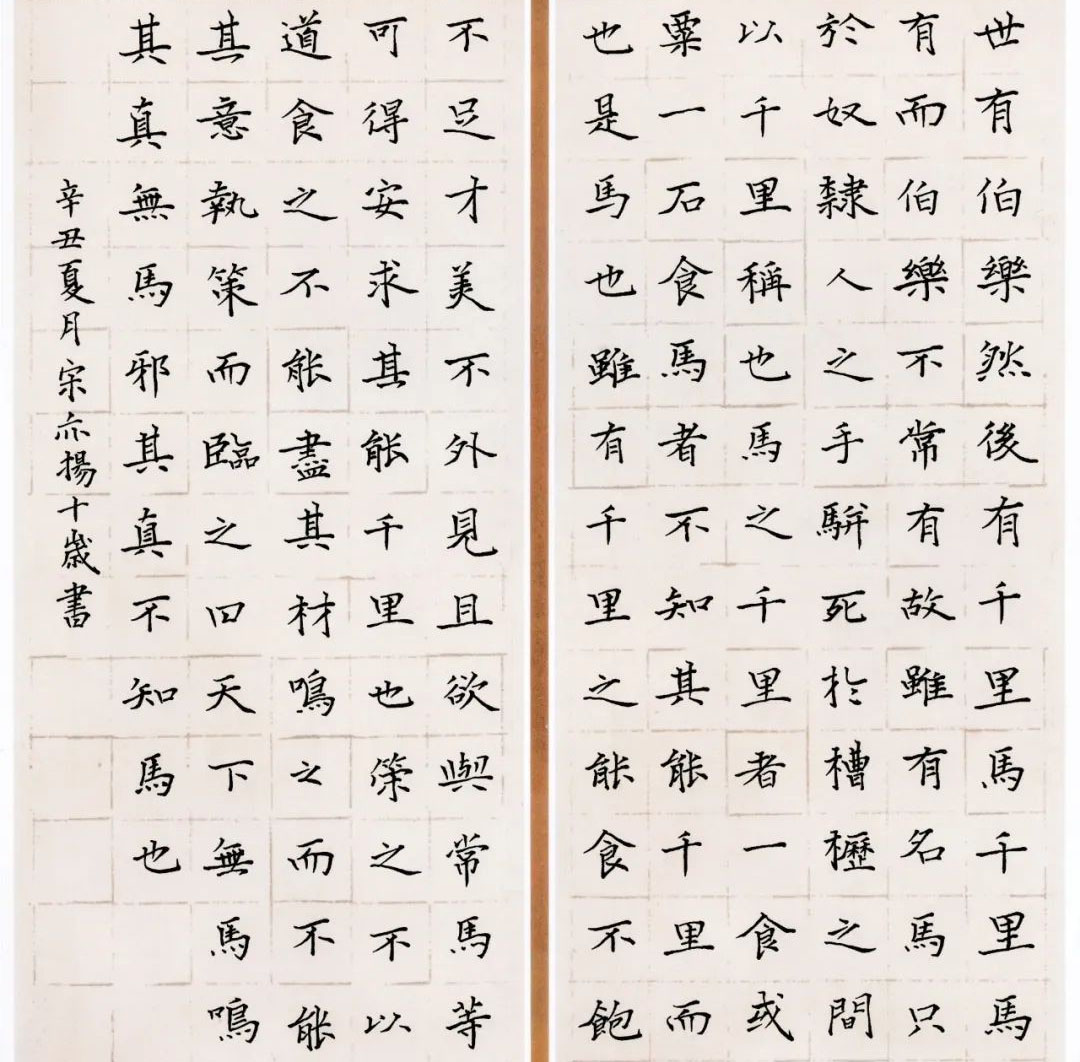 世有伯樂然後有千里馬千里馬
有而伯樂不常有故雖有名馬只
於奴隸人之手駢死於槽櫪之間
以千里稱也馬之千里者一食或
粟一石食馬者不知其能千里而
也是馬也雖有千里之能食不飽
不足才美不外見且欲與常馬等
可得安求其能千里也策之不以
道食之不能盡其材鳴之而不能
其意執策而臨之曰天下無馬鳴
其真無馬邪其真不知馬也
辛丑夏月宋亦揚十歲書